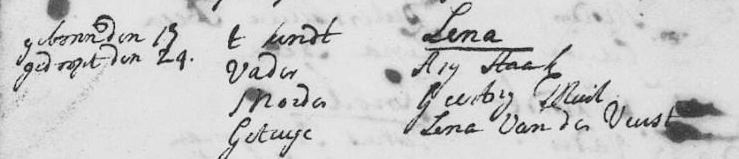 gebooren den 13 t kindt Lena
gedoopt den 24. Vader Ary Staal
Moeder Geertry
Getuyge Lena Van der Vorst